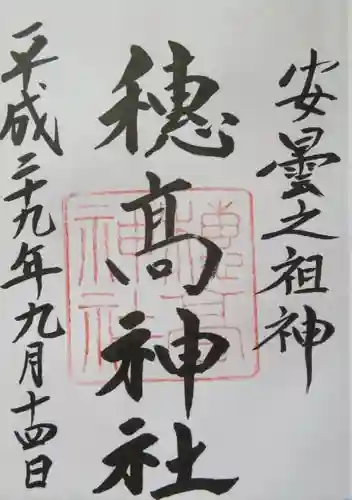 安曇之祖神
穂髙神社
平成二十九年九月十四日
穂高
神社